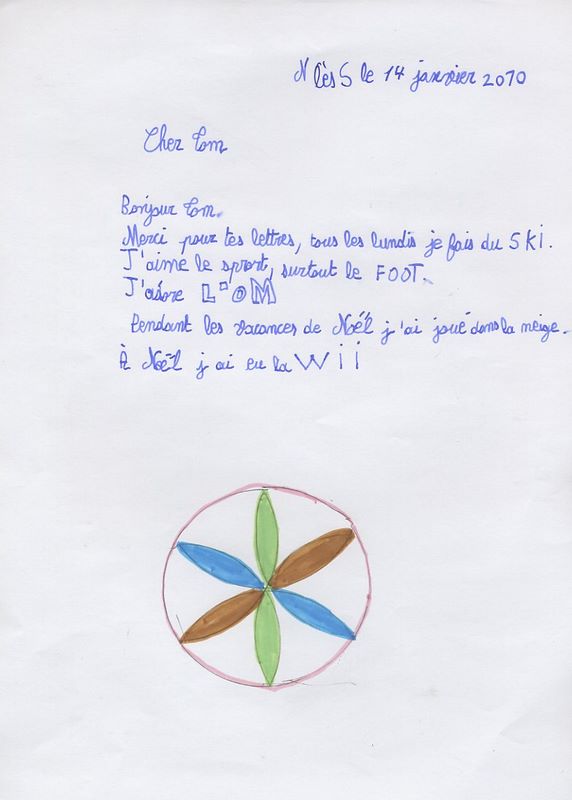 lès le 14 janvier 2010
Cher Tom
Bonjour Tom.
Merci pour tes lettres, tous les lundis je fais du SKi.
J'aime le sport, surtout le FOOT.
J'adore L'OM
Pendant les vacances de Noël j'ai joué dans la neige.
À Noël j ai eu la Wii